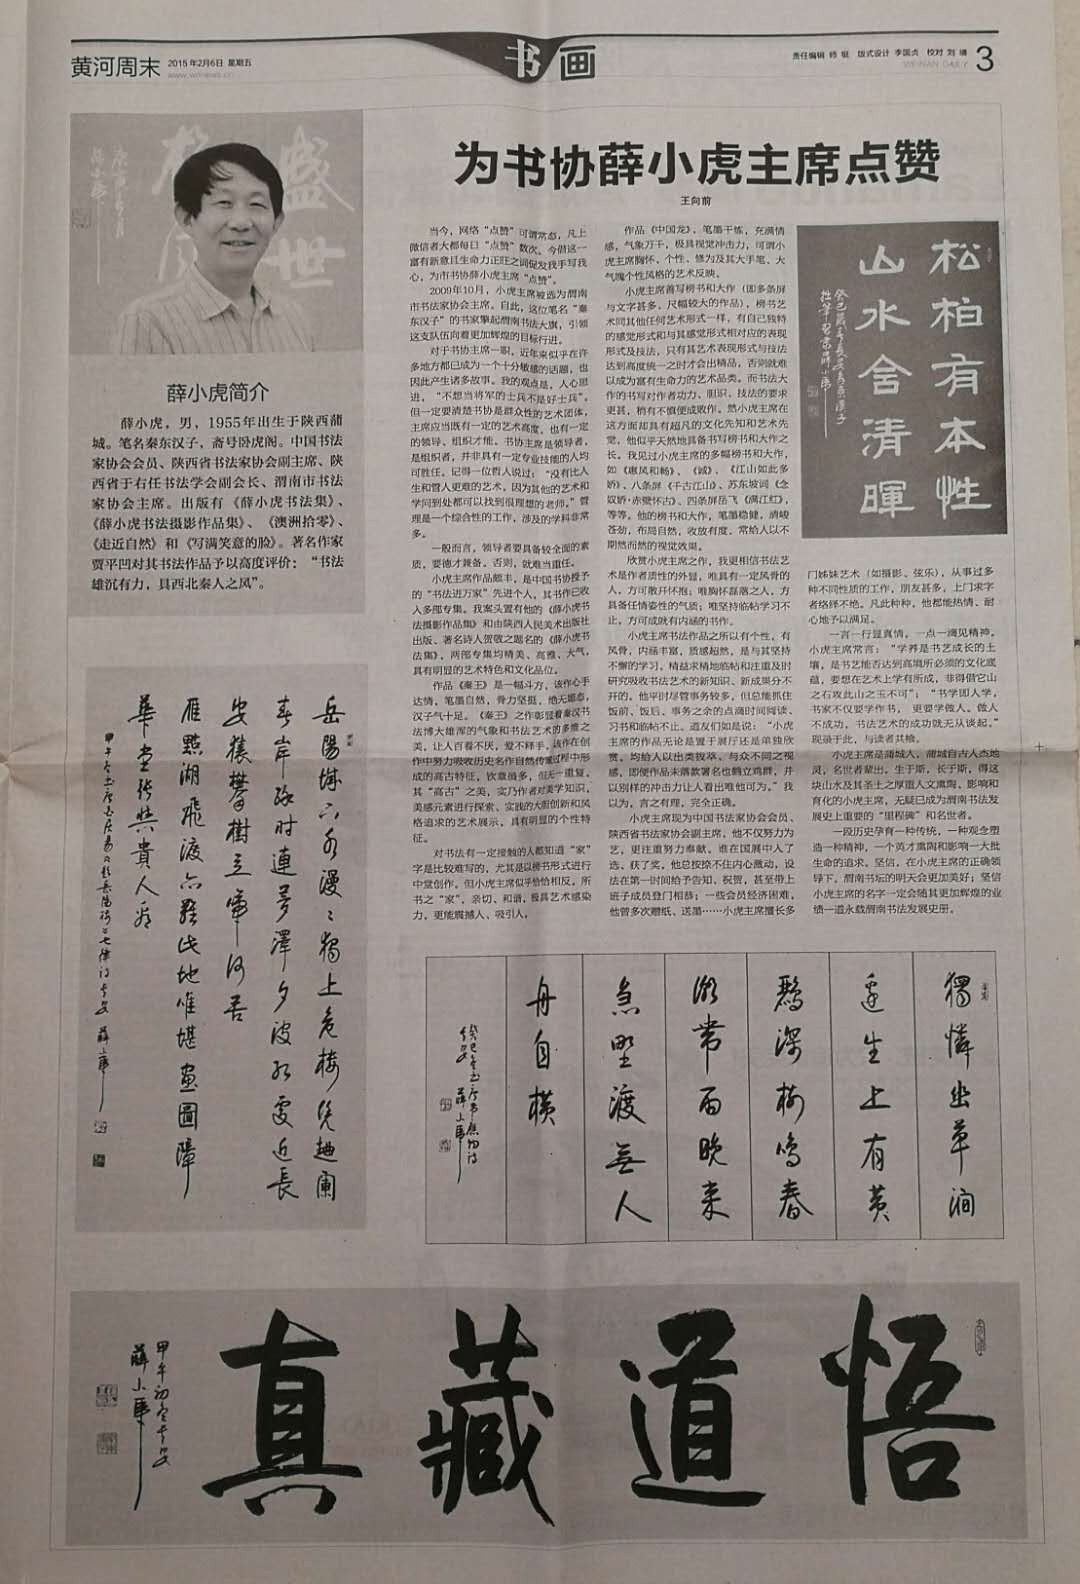 黄河周末
2015年2月6日 星期五
www.wnnews.cn
书画
责任编辑 师 锟 版式设计 李国贞 校对 刘 婧
WEINAN DAILY
3
为书协薛小虎主席点赞
王向前
薛小虎简介
薛小虎，男，1955年出生于陕西蒲
城。笔名秦东汉子，斋号卧虎阁。中国书法
家协会会员、陕西省书法家协会副主席、陕
西省于右任书法学会副会长、渭南市书法
家协会主席。出版有《薛小虎书法集》、
《薛小虎书法摄影作品集》、《澳洲拾零》、
《走近自然》和《写满笑意的脸》。著名作家
贾平凹对其书法作品予以高度评价：“书法
雄沉有力，具西北秦人之风”。
当今，网络“点赞”可谓常态，凡上
微信者大都每日“点赞”数次。今借这一
富有新意且生命力正旺之词促发我手写我
心，为市书协薛小虎主席“点赞”。
2009年10月，小虎主席被选为渭南
市书法家协会主席。自此，这位笔名“秦
东汉子”的书家擎起渭南书法大旗，引领
这支队伍向着更加辉煌的目标行进。
对于书协主席一职，近年来似乎在许
多地方都已成为一个十分敏感的话题，也
因此产生诸多故事。我的观点是，人心思
进，“不想当将军的士兵不是好士兵”。
但一定要清楚书协是群众性的艺术团体，
主席应当既有一定的艺术高度，也有一定
的领导、组织才能。书协主席是领导者，
是组织者，并非具有一定专业技能的人均
可胜任。记得一位哲人说过：“没有比人
生和管人更难的艺术，因为其他的艺术和
学问到处都可以找到很理想的老师。”管
理是一个综合性的工作，涉及的学科非常
多。
一般而言，领导者要具备较全面的素
质，要德才兼备。否则，就难当重任。
小虎主席作品颇丰，是中国书协授予
的“书法进万家”先进个人，其书作已收
入多部专集。我案头置有他的《薛小虎书
法摄影作品集》和由陕西人民美术出版社
出版、著名诗人贺敬之题名的《薛小虎书
法集》，两部专集均精美、高雅、大气，
具有明显的艺术特色和文化品位。
作品《秦王》是一幅斗方，该作心手
达情，笔墨自然，骨力坚挺，绝无媚态，
汉子气十足。《秦王》之作彰显着秦汉书
法博大雄浑的气象和书法艺术的多维之
美，让人百看不厌，爱不释手。该作在创
作中努力吸收历史名作自然传承过程中形
成的高古特征，钦章虽多，但无一重复。
其“高古”之美，实乃作者对美学知识，
美感元素进行探索、实践的大胆创新和风
格追求的艺术展示。具有明显的个性特
征。
对书法有一定接触的人都知道“家”
字是比较难写的，尤其是以榜书形式进行
中堂创作。但小虎主席似乎恰恰相反，所
书之“家”，亲切、和谐，极具艺术感染
力，更能震撼人、吸引人。
作品《中国龙》，笔墨干练，充满情
感，气象万千，极具视觉冲击力，可谓小
虎主席胸怀、个性、修为及其大手笔、大
气魄个性风格的艺术反映。
小虎主席善写榜书和大作（即多条屏
与文字甚多，尺幅较大的作品），榜书艺
术同其他任何艺术形式一样，有自己独特
的感觉形式和与其感觉形式相对应的表现
形式及技法，只有其艺术表现形式与技法
达到高度统一之时才会出精品，否则就难
以成为富有生命力的艺术品类。而书法大
作的书写对作者功力、胆识、技法的要求
更甚，稍有不慎便成败作。然小虎主席在
这方面却具有超凡的文化先知和艺术先
觉，他似乎天然地具备书写榜书和大作之
长。我见过小虎主席的多幅榜书和大作，
如《惠风和畅》、《诚》、《江山如此多
娇》、八条屏《千古江山》、苏东坡词《念
奴娇·赤壁怀古》、四条屏岳飞《满江红》，
等等。他的榜书和大作，笔墨稳健，清峻
苍劲，布局自然，收放有度，常给人以不
期然而然的视觉效果。
欣赏小虎主席之作，我更相信书法艺
术是作者质性的外显，唯具有一定风骨的
人，方可敞开怀抱；唯胸怀磊落之人，方
具备任情姿性的气质；唯坚持临帖学习不
止，方可成就有内涵的书作。
小虎主席书法作品之所以有个性，有
风骨，内涵丰富，质感超然，是与其坚持
不懈的学习，精益求精地临帖和注重及时
研究吸收书法艺术的新知识、新成果分不
开的。他平时尽管事务较多，但总能抓住
饭前、饭后、事务之余的点滴时间阅读、
习书和临帖不止。道友们如是说：“小虎
主席的作品无论是置于展厅还是单独欣
赏，均给人以出类拔萃、与众不同之视
感，即便作品未落款署名也鹤立鸡群，并
以别样的冲击力让人看出唯他可为。”我
以为，言之有理，完全正确。
小虎主席现为中国书法家协会会员、
陕西省书法家协会副主席，他不仅努力为
艺，更注重努力奉献。谁在国展中入了
选、获了奖，他总按捺不住内心激动，设
法在第一时间给予告知、祝贺，甚至带上
班子成员登门相恭；一些会员经济困难，
他曾多次赠纸、送墨……小虎主席擅长多
门姊妹艺术（如摄影、弦乐），从事过多
种不同性质的工作，朋友甚多，上门求字
者络绎不绝。凡此种种，他都能热情、耐
心地予以满足。
一言一行显真情，一点一滴见精神。
小虎主席常言：“学养是书艺成长的土
壤，是书艺能否达到高境所必须的文化底
蕴，要想在艺术上学有所成，非得借它山
之石攻此山之玉不可”；“书学即人学，
书家不仅要学作书，更要学做人。做人
不成功，书法艺术的成功就无从谈起。”
现录于此，与读者共飨。
小虎主席是蒲城人，蒲城自古人杰地
灵，名世者辈出。生于斯，长于斯，得这
块山水及其圣土之厚重人文熏陶、影响和
育化的小虎主席，无疑已成为渭南书法发
展史上重要的“里程碑”和名世者。
一段历史孕育一种传统，一种观念塑
造一种精神，一个英才熏陶和影响一大批
生命的追求。坚信，在小虎主席的正确领
导下，渭南书坛的明天会更加美好；坚信
小虎主席的名字一定会随其更加辉煌的业
绩一道永载渭南书法发展史册。
松柏有本性
山水含清暉
盛世
岳陽城下水漫漫獨上危樓凭曲闌
春岸綠時連夢澤夕波紅處近長
安猿攀樹立啼何苦
雁點湖飛渡亦難此地唯堪畫圖障
華堂張與貴人看
薛小虎
獨憐幽草澗
邊生上有黃
鸝深樹鳴春
潮帶雨晚來
急野渡無人
舟自橫
薛小虎
悟道藏真
甲午初冬于安
薛小虎